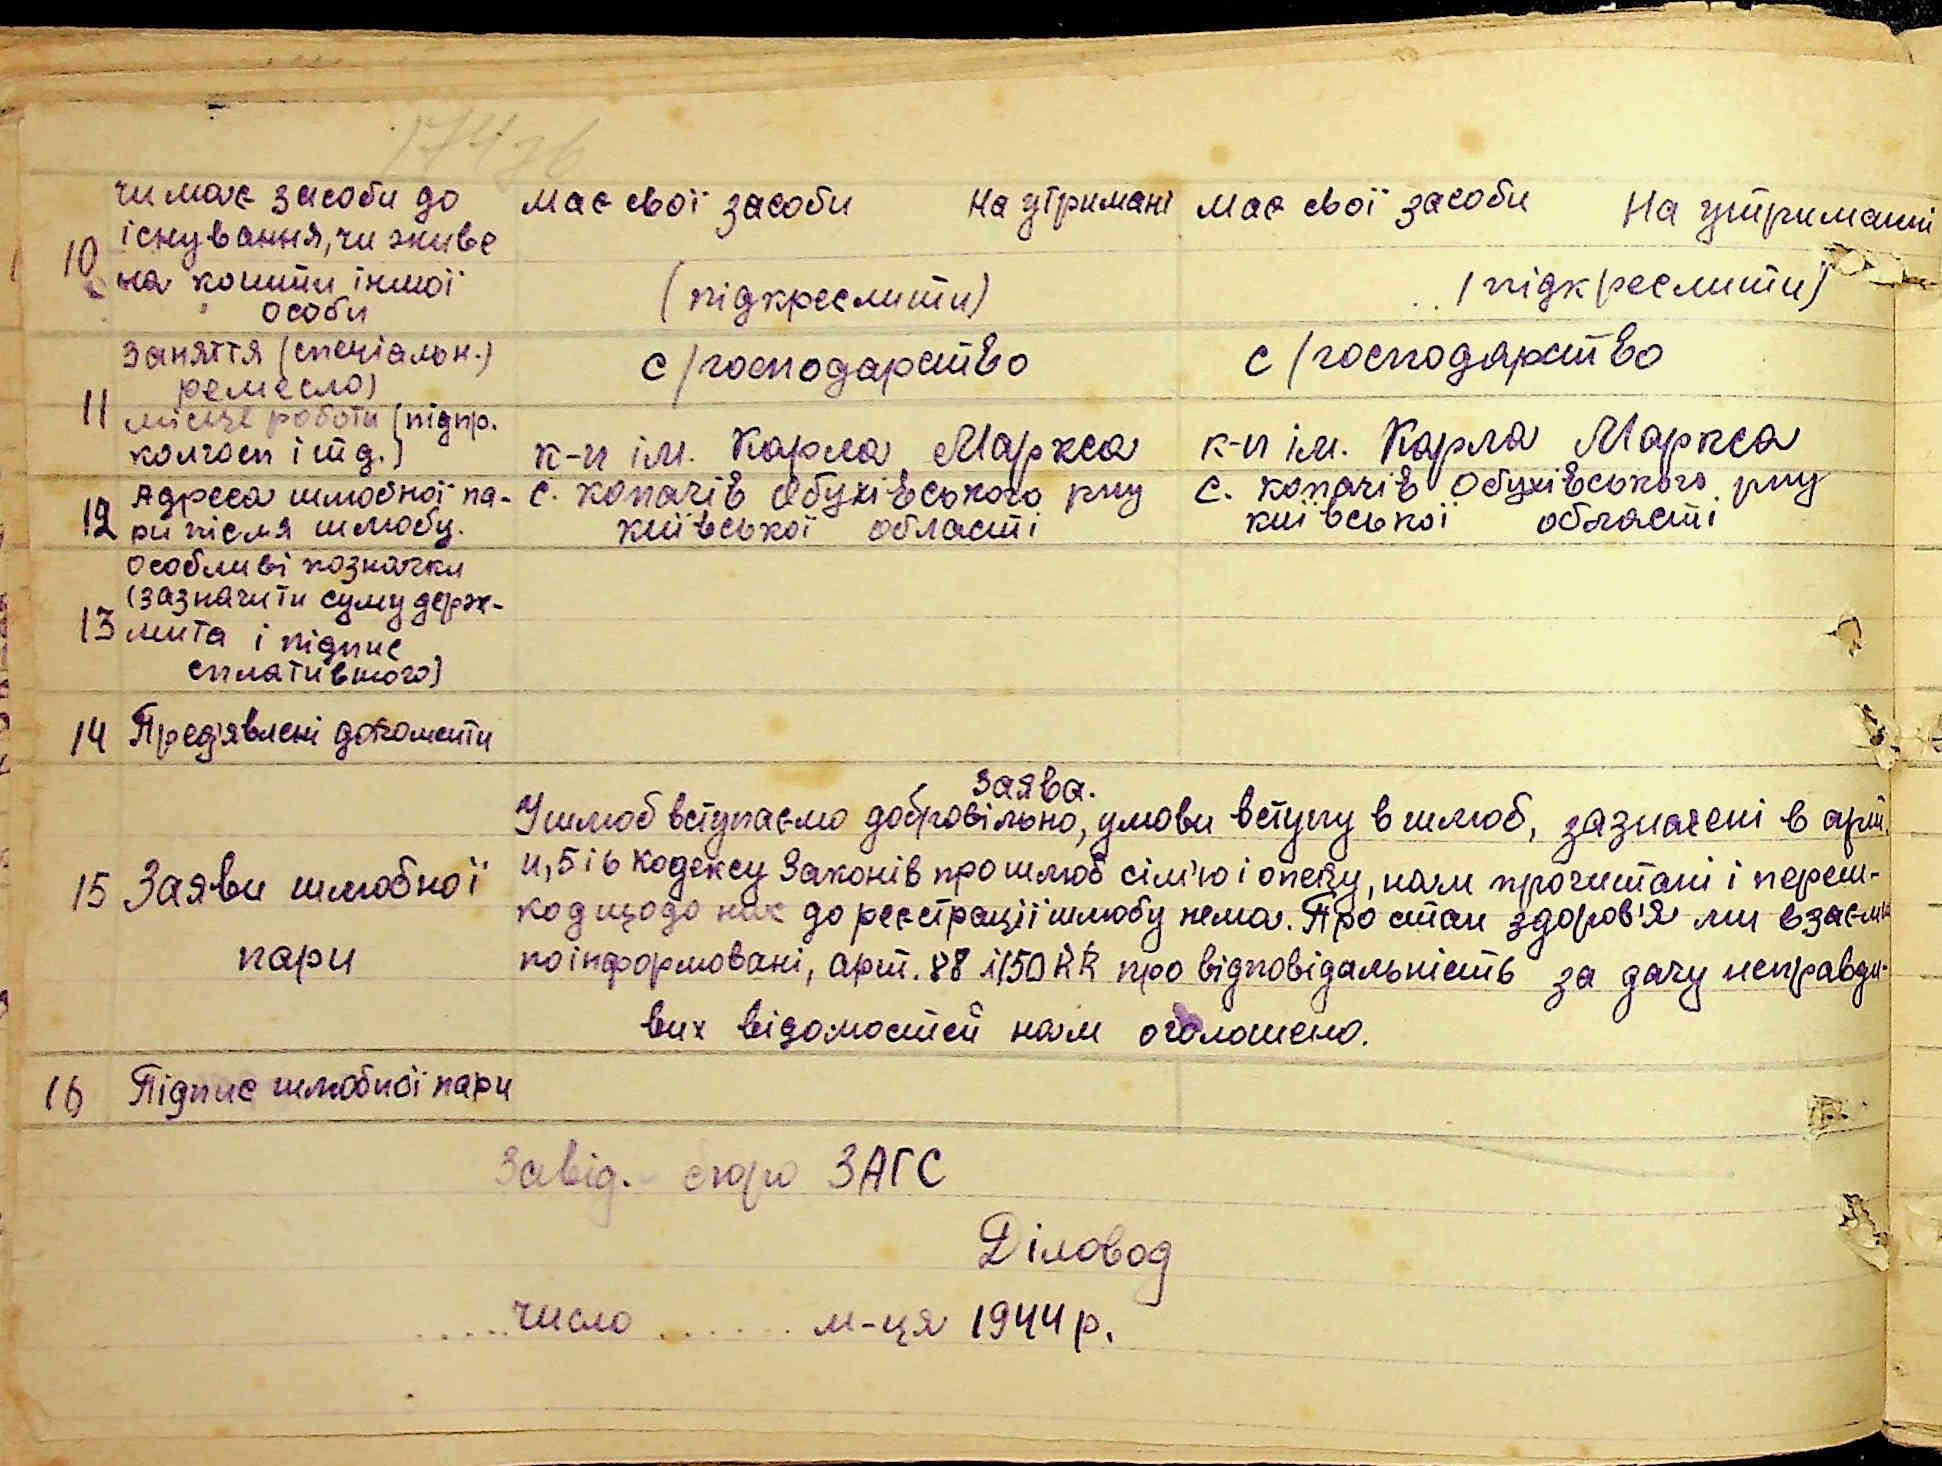 174 зв
чи має засоби до
існування, чи живе
10 на кошти іншої
особи
має свої засоби На утримані
(підкреслити)
має свої засоби На утриманні
(підкреслити)
заняття (спеціальн.)
ремесло)
с/господарство
с/господарство
11 місце роботи (підпр.
колгосп і т д.)
к-п ім. Карла Маркса
к-п ім. Карла Маркса
Адреса шлюбної па-
12 ри після шлюбу.
с. Копачів Обухівського рну
київської області
с. Копачів Обухівського рну
київської області
особливі позначки
(зазначити суму держ-
13 мита і підпис
сплатившого)
14 Пред'явлені документи
15 Заяви шлюбної
пари
Заява.
У шлюб вступаємо добровільно, умови вступу в шлюб, зазначені в арт.
4, 5 і 6 кодексу Законів про шлюб сім'ю і опеку, нам прочитані і переш-
код щодо них до реєстрації шлюбу нема. Про стан здоров'я ми взаємн
поінформовані, арт. 88 і 150 КК про відповідальність за дачу неправди-
вих відомостей нам оголошено.
16 Підпис шлюбної пари
Завід. бюро ЗАГС
Діловод
.....число ...... м-ця 1944 р.